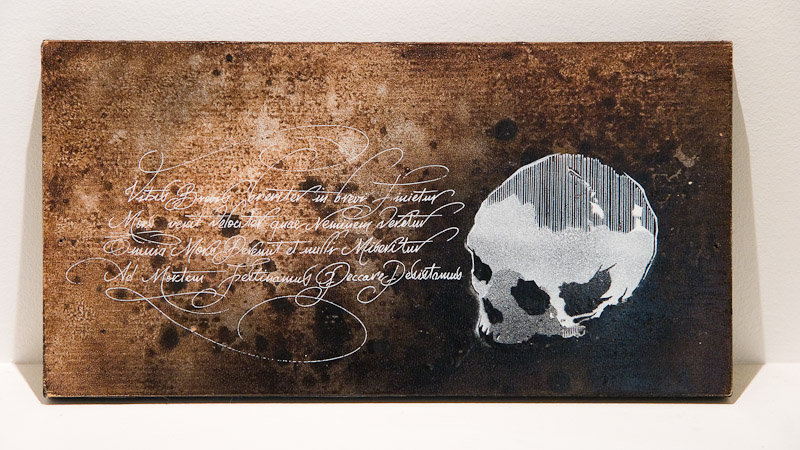 Vita Brevis breviter in brevi Finietur
Mors venit velociter quae Neminem veretur
Omnia Mors Perimit et nulli Miseretur
Ad Mortem Festinamus Peccare Desistamus